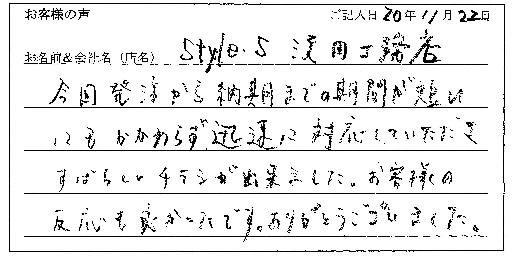 お客様の声 ご記入日 20年 11月 22日
お名前&会社名(店名) Style・S 浅田工務店
今回発注から納期までの期間が短い
にもかかわらず迅速に対応していただき
すばらしいチラシが出来ました。お客様の
反応も良かったです。ありがとうございました。